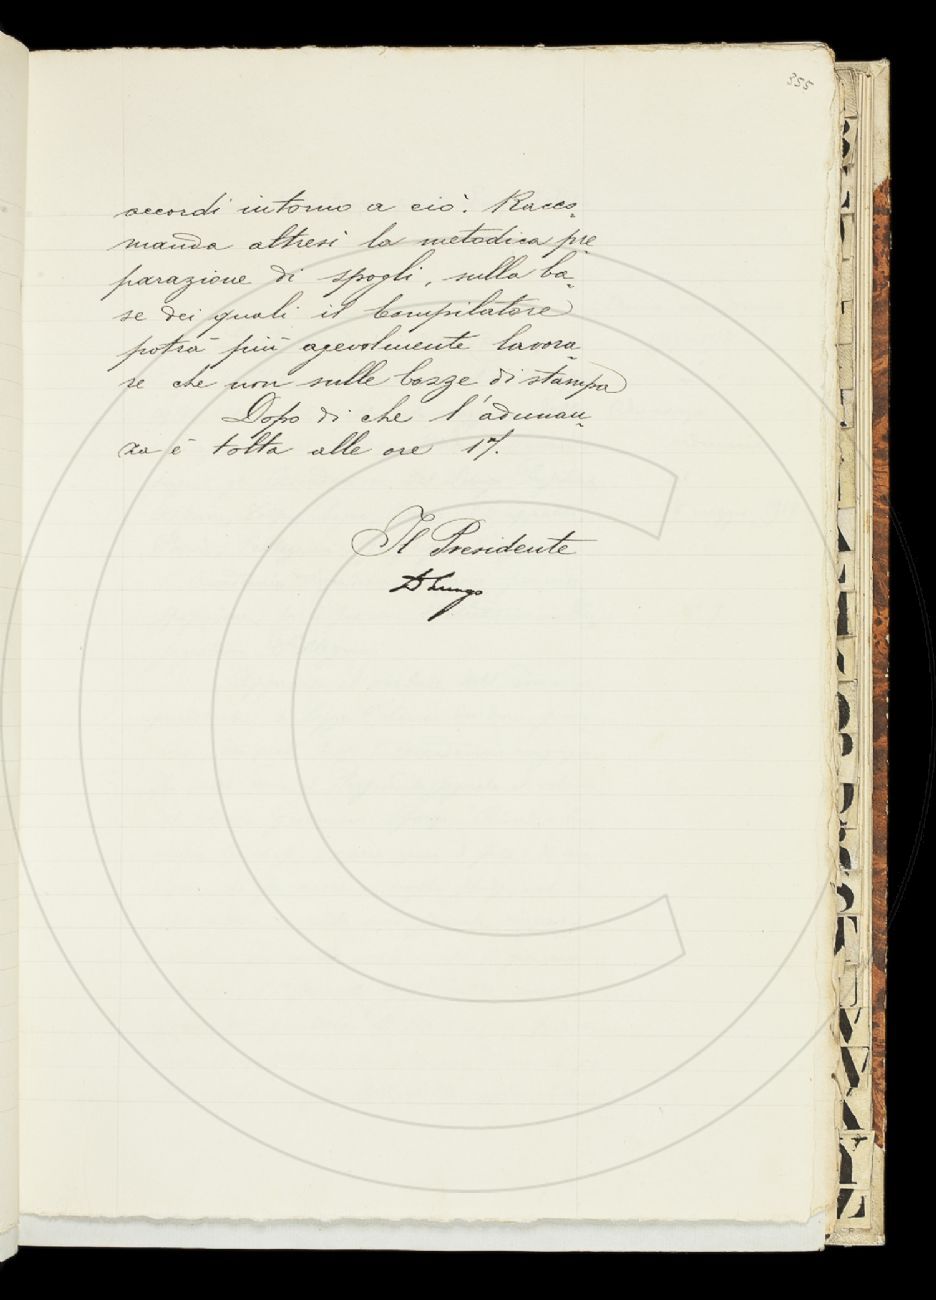 355
accordi intorno a ciò. Racco-
manda altresì la metodica pre-
parazione di spogli, sulla ba-
se dei quali il Compilatore
potrà più agevolmente lavora-
re che non sulle bozze di stampa
Dopo di che l'adunan-
za è tolta alle ore 17.
Il Presidente
Del Lungo